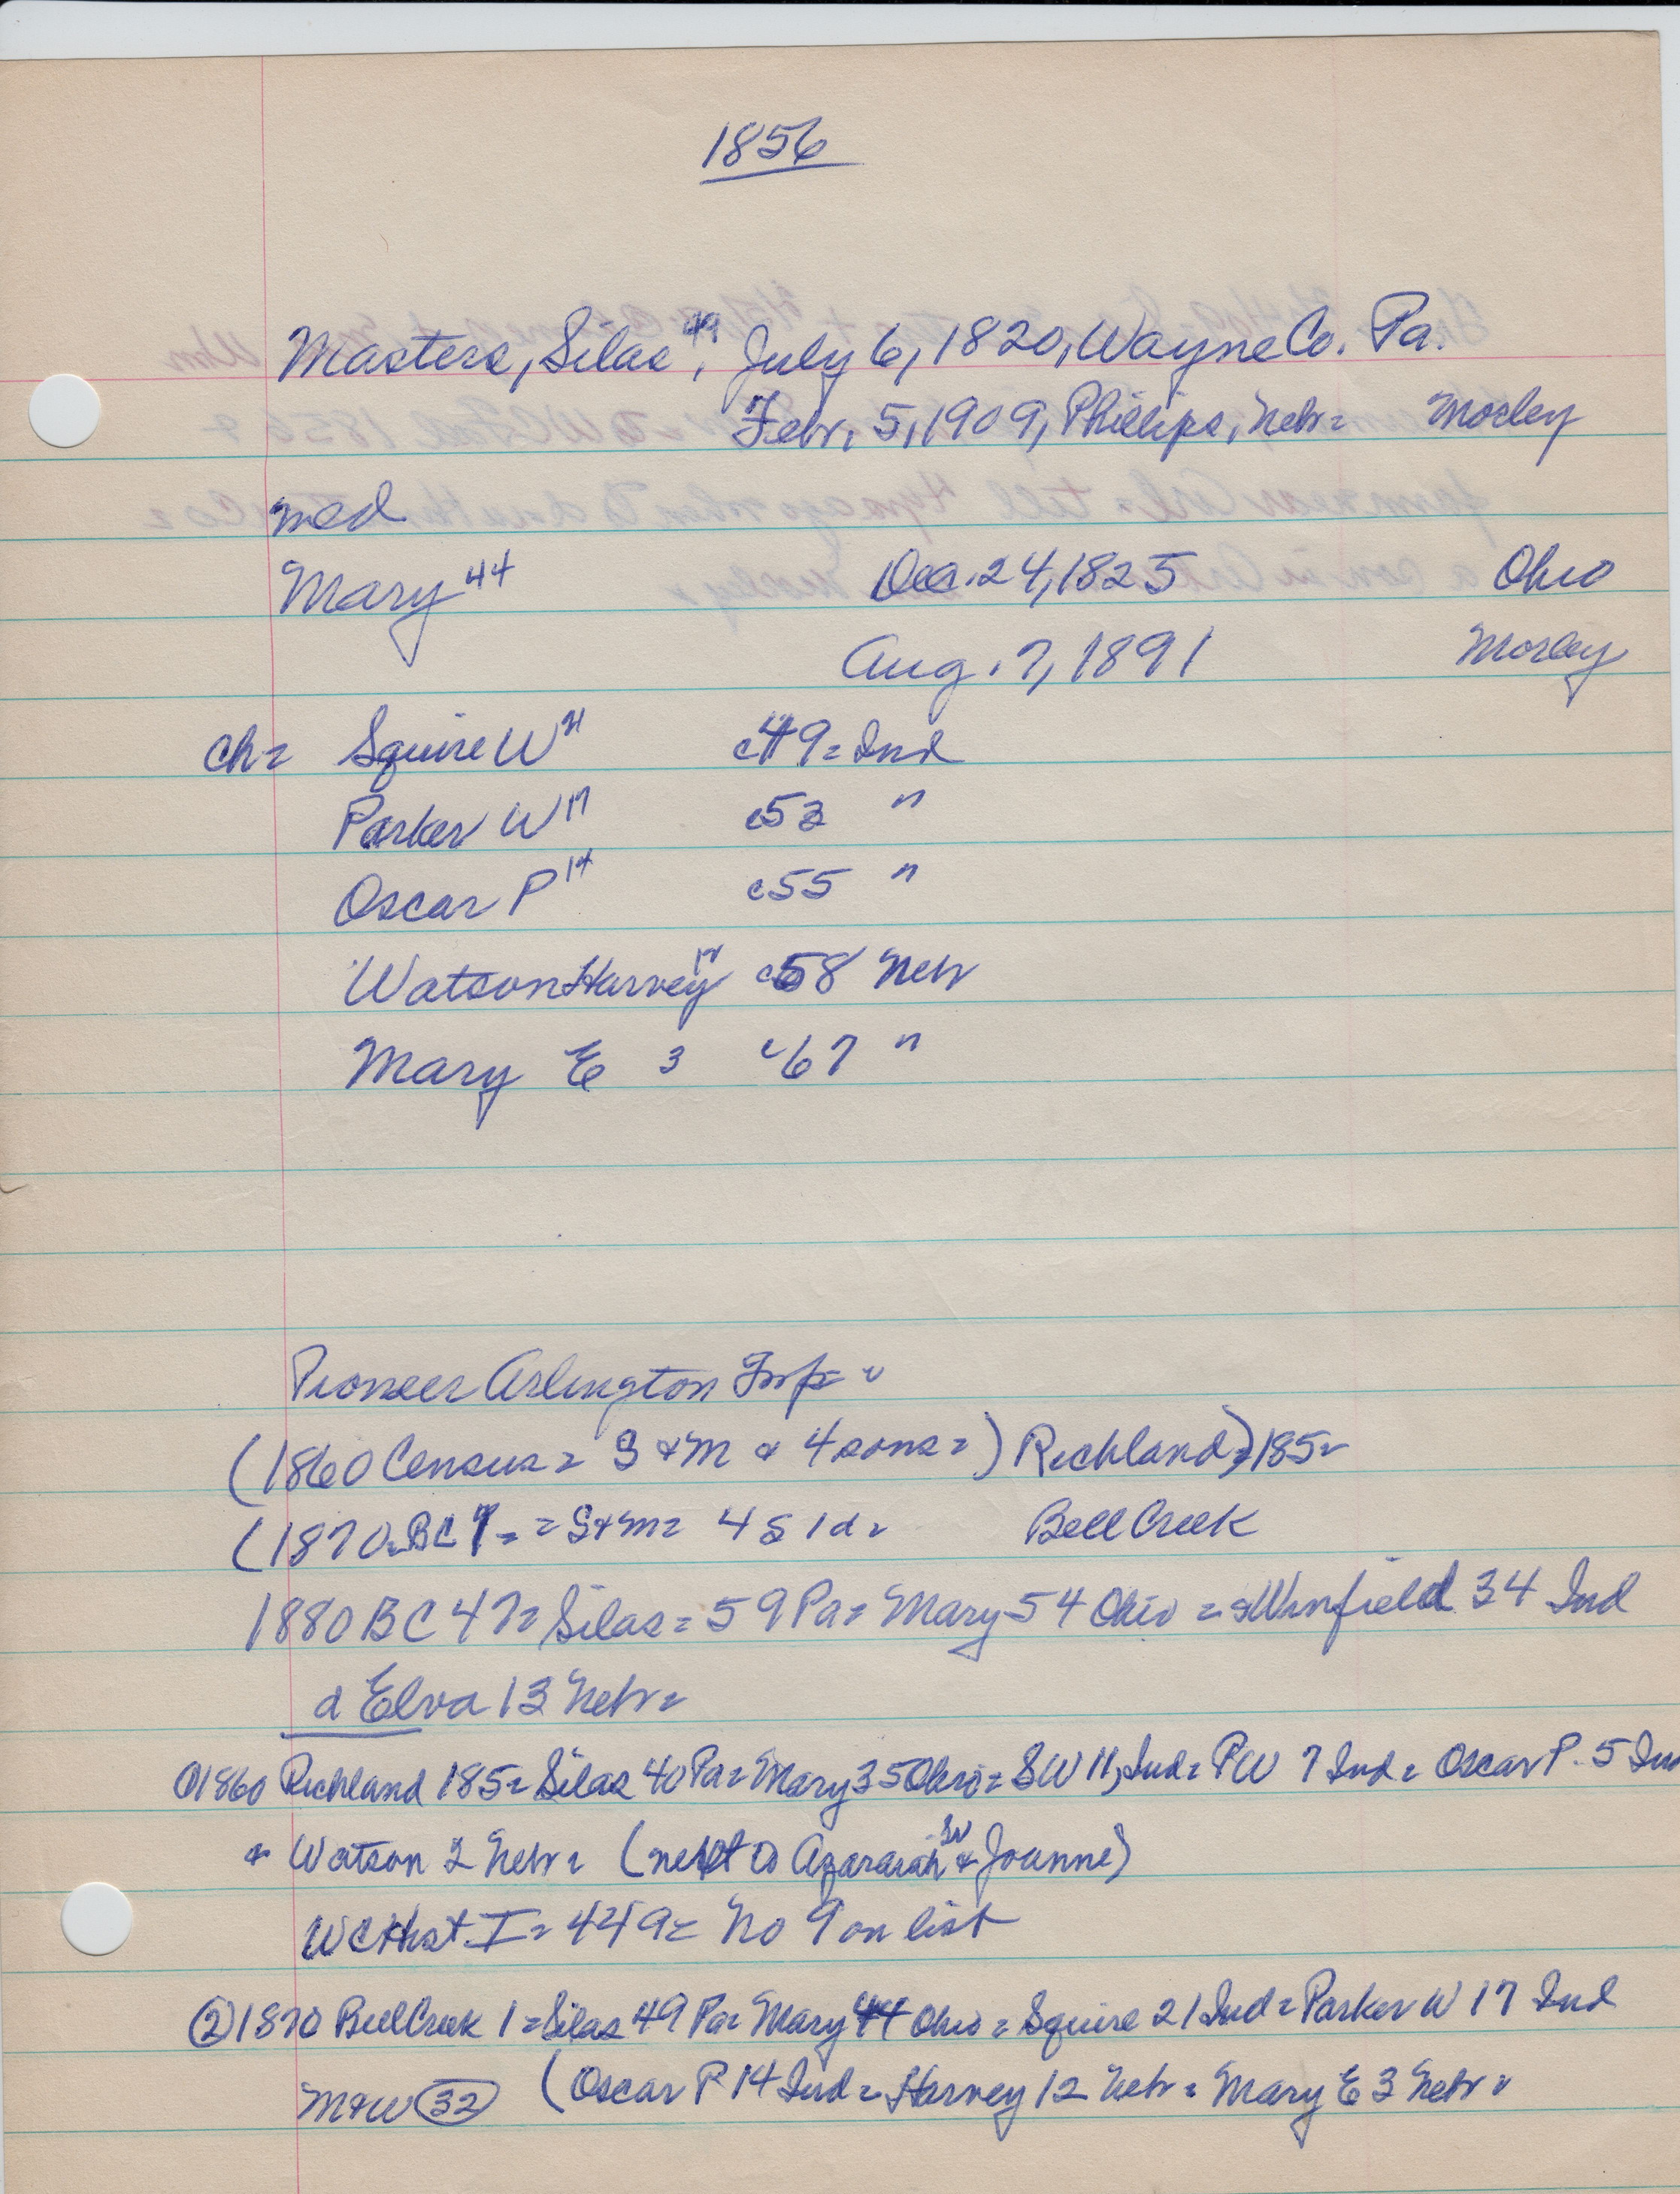 1856
Masters, Silas 49, July 6, 1820, Wayne Co. Pa.
Febr. 5, 1909, Phillips, Nebr = Mosley
med
Mary 44 Dec. 24, 1825 Ohio
Aug. 7, 1891 Mosley
Ch = Squire W 21 c49 = Ind
Parker W 17 c53 "
Oscar P 14 c55 "
Watson Harvey 12 c58 Nebr
Mary E 3 c67 "
Pioneer Arlington Twp =
(1860 Census = S + M + 4 sons = ) Richland) 185 =
(1870 BC 1 = = S + M = 4 S 1 d = Bell Creek
1880 BC 47 = Silas = 59 Pa = Mary 54 Ohio = s Winfield 34 Ind
d Elva 13 Nebr =
① 1860 Richland 185 = Silas 40 Pa = Mary 35 Ohio = SW 11, Ind = PW 7 Ind = Oscar P. 5 Ind
+ Watson 2 Nebr = (next to Azarariah Sr + Joanne)
WC Hist I = 449 = No 9 on list
② 1870 Bell Creek 1 = Silas 49 Pa = Mary 44 Ohio = Squire 21 Ind = Parker W 17 Ind
M+W 32 (Oscar P 14 Ind = Harvey 12 Nebr = Mary E 3 Nebr =